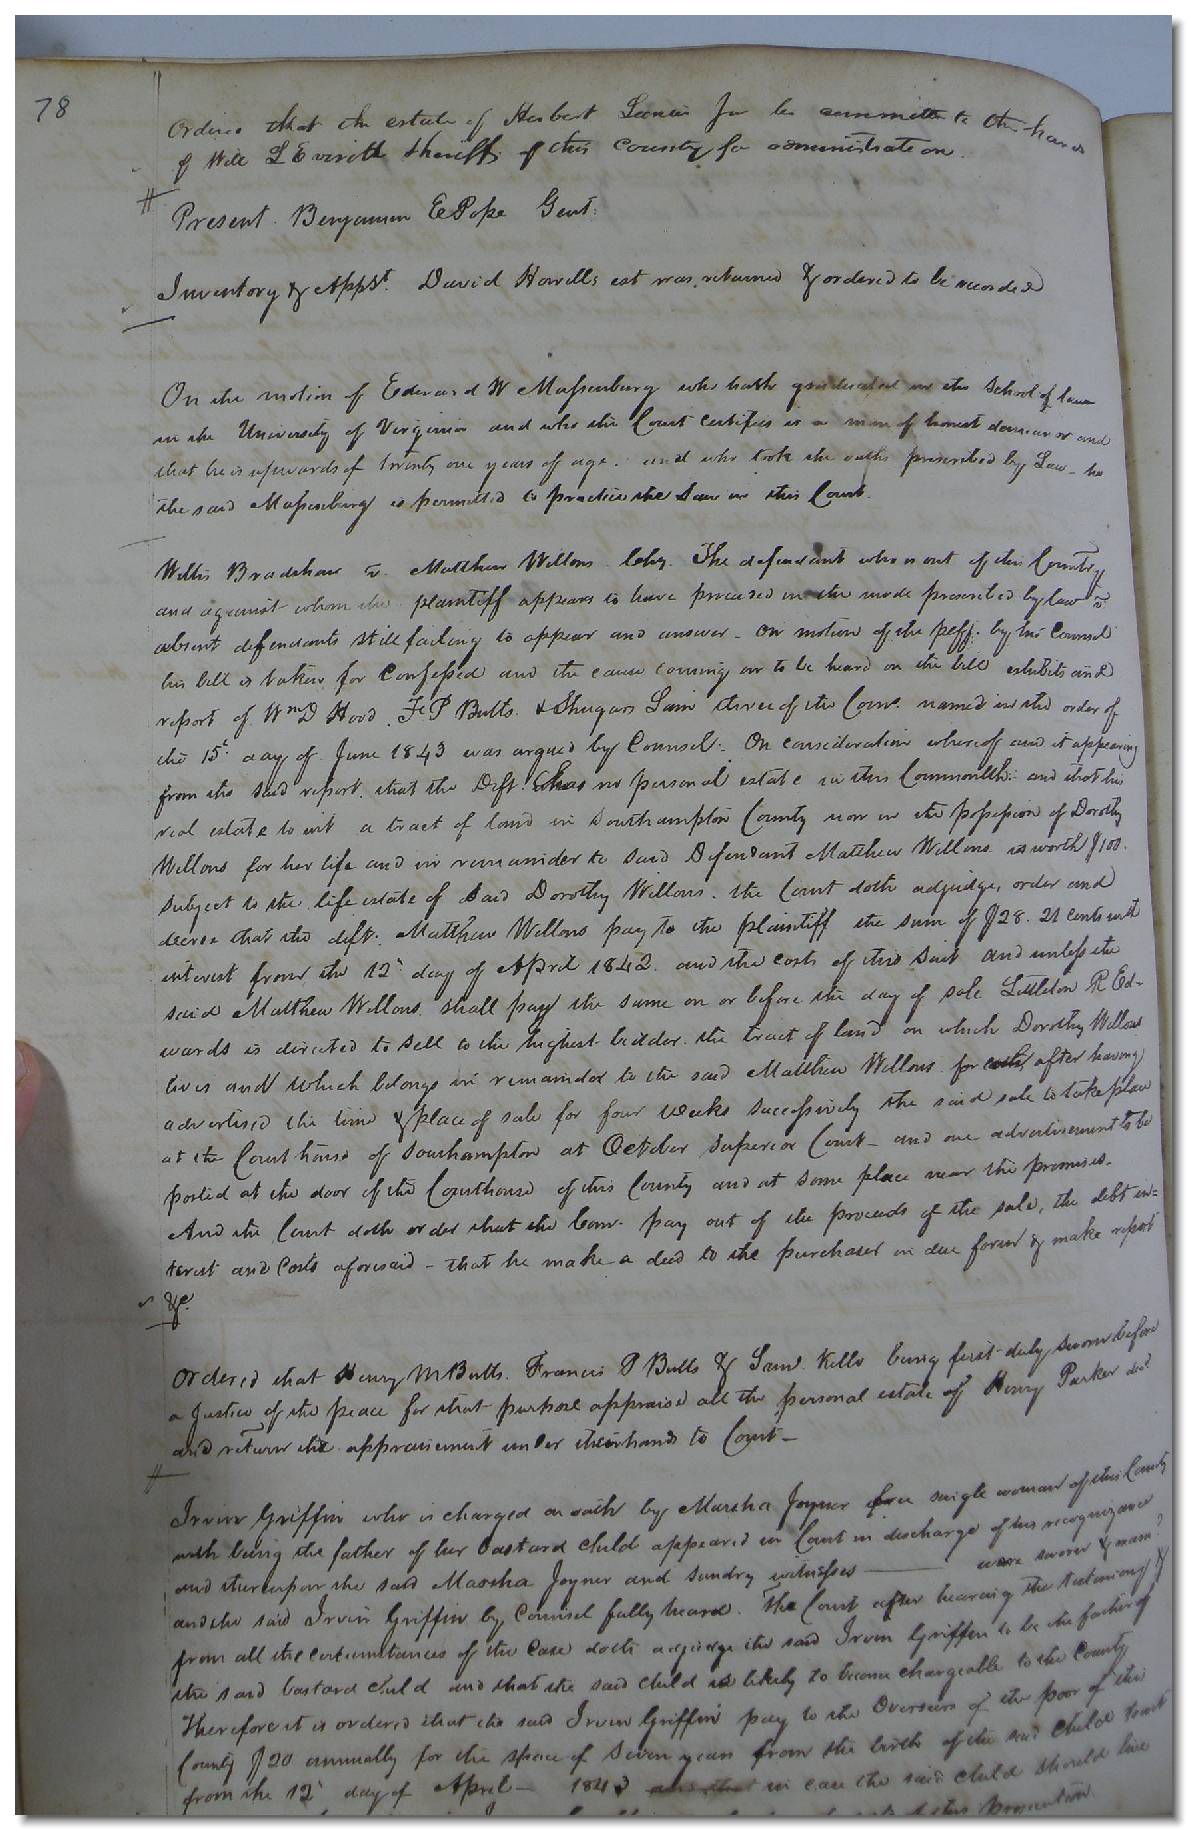 78
Ordered that the estate of Herbert Lanier Jr be committed to the hands
of Will L Everitt Sheriff of this County for administration.
Present Benjamin E Pope Gent:
Inventory & Appst. David Howells est was returned & ordered to be recorded
On the motion of Edward W Massenburg who hath graduated in the School of law
in the University of Virginia and who the Court certifies is a man of honest demeanor and
that he is upwards of twenty one years of age. and who took the oaths prescribed by Law
the said Massenburg is permitted to practice the Law in this Court.
Willis Bradshaw v. Matthew Wellons The defendant who is out of this Country
and against whom the plaintiff appears to have proceeded in the mode prescribed by law vs
absent defendants still failing to appear and answer - On motion of the plff. by his Counsel
his bill is taken for Confessed and the cause coming on to be heard on the bill exhibits and
report of Wm D Hood F P Butts & Shugars Lain three of the Coms. named in the order of
the 15t day of June 1843 was argued by Counsel. On consideration whereof and it appearing
from the said report that the Deft. has no personal estate in this Commonlth: and that his
real estate to wit a tract of land in Southampton County now in the possession of Dorothy
Wellons for her life and in remainder to said Defendant Matthew Wellons is worth $100.
subject to the life estate of said Dorothy Wellons. the Court doth adjudge, order and
decree that the deft. Matthew Wellons pay to the plaintiff the sum of $28. 21 cents with
interest from the 12 day of April 1842 and the costs of this suit and unless the
said Matthew Wellons shall pay the same on or before the day of sale Littleton R Ed-
wards is directed to sell to the highest bidder the tract of land on which Dorothy Wellons
lives and which belongs in remainder to the said Matthew Wellons for after having
advertised the time & place of sale for four weeks successively the said sale to take place
at the Courthouse of Southampton at October Superior Court - and one advertisement to be
posted at the door of the Courthouse of this County and at some place near the premises.
And the Court doth order that the Com. pay out of the proceeds of the sale, the debt in=
terest and Costs aforesaid - that he make a deed to the purchaser in due form & make report
&c.
Ordered that Henry M Butts. Francis P Butts & Saml. Kello being first duly sworn before
a Justice of the peace for that purpose appraise all the personal estate of Henry Parker decd
and return the appraisement under their hands to Court -
Irvin Griffin who is charged on oath by Marsha Joyner free single woman of this County
with being the father of her bastard child appeared in Court in discharge of his recognizance
and thereupon the said Marsha Joyner and sundry witnesses were sworn &
and the said Irvin Griffin by Counsel fully heard. The Court after hearing the testimony &
from all the circumstances of the Case doth adjudge the said Irvin Griffin to be the father of
the said bastard child and that the said child is likely to become chargeable to the County
Therefore it is ordered that the said Irvin Griffin pay to the Overseers of the poor of this
County $20 annually for the space of seven years from the birth of the said child
from the 12 day of April - 1843 in case the said child should live
of this prosecution.